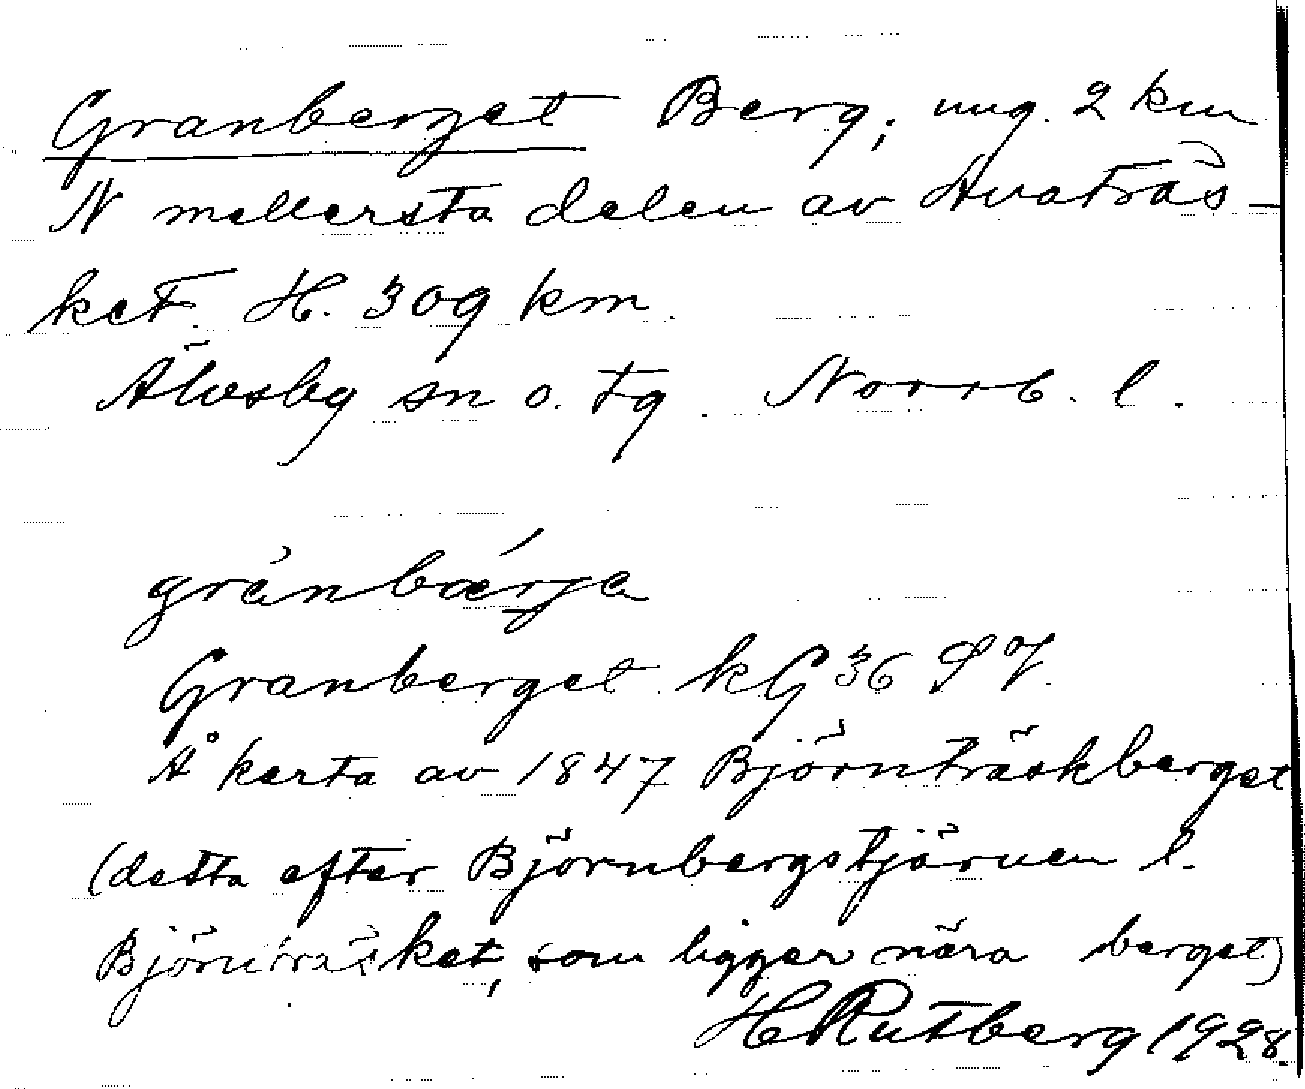 Granberget Berg; ung. 2 km
N mellersta delen av Avaträs-
ket. H. 309 km.
Älvsby sn o. tg. Norrb. l.
gránbǽrja
Granberget kG 36 SV.
Å karta av 1847 Björnträskberget
(detta efter Björnbergstjärnen l.
Björnträsket, som ligger nära berget)
H Rutberg 1928.